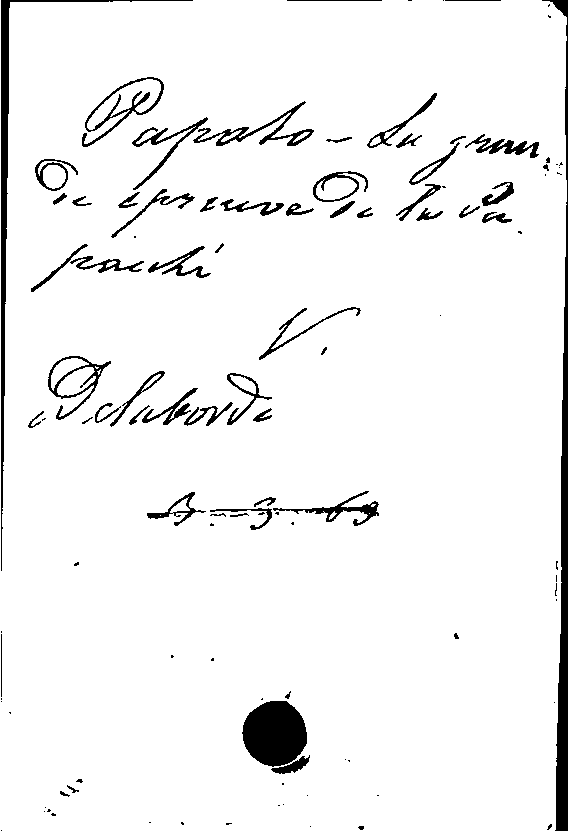 Papato - La gran
de épreuve de la Pa
pauté
V.
Delaborde
3. 3. 69